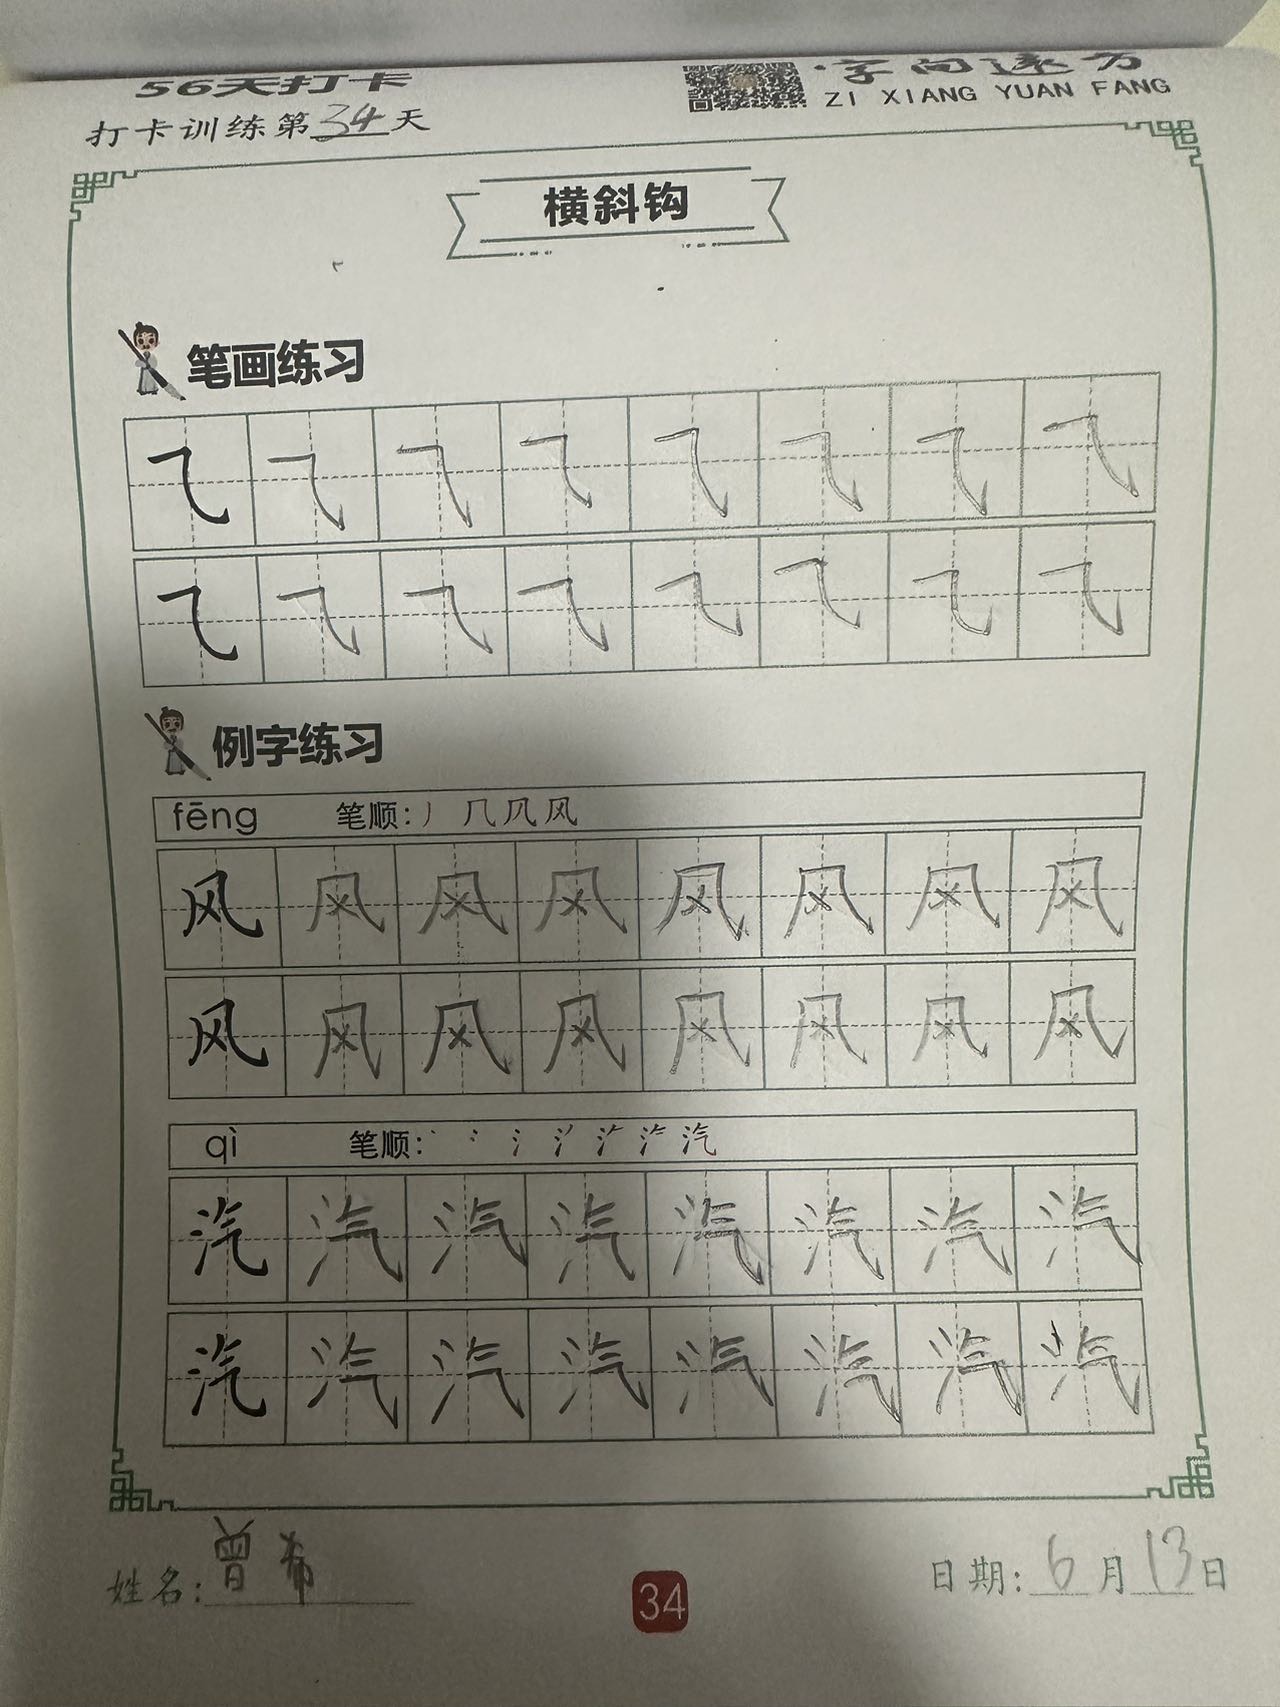 56天打卡
打卡训练第34天
字向逐方
ZI XIANG YUAN FANG
横斜钩
笔画练习
㇈ ㇈ ㇈ ㇈ ㇈ ㇈ ㇈ ㇈
㇈ ㇈ ㇈ ㇈ ㇈ ㇈ ㇈ ㇈
例字练习
fēng 笔顺:丿 几 风 风
风 风 风 风 风 风 风 风
风 风 风 风 风 风 风 风
qì 笔顺:
汽 汽 汽 汽 汽 汽 汽 汽
汽 汽 汽 汽 汽 汽 汽 汽
姓名:曾希
34
日期:6月13日